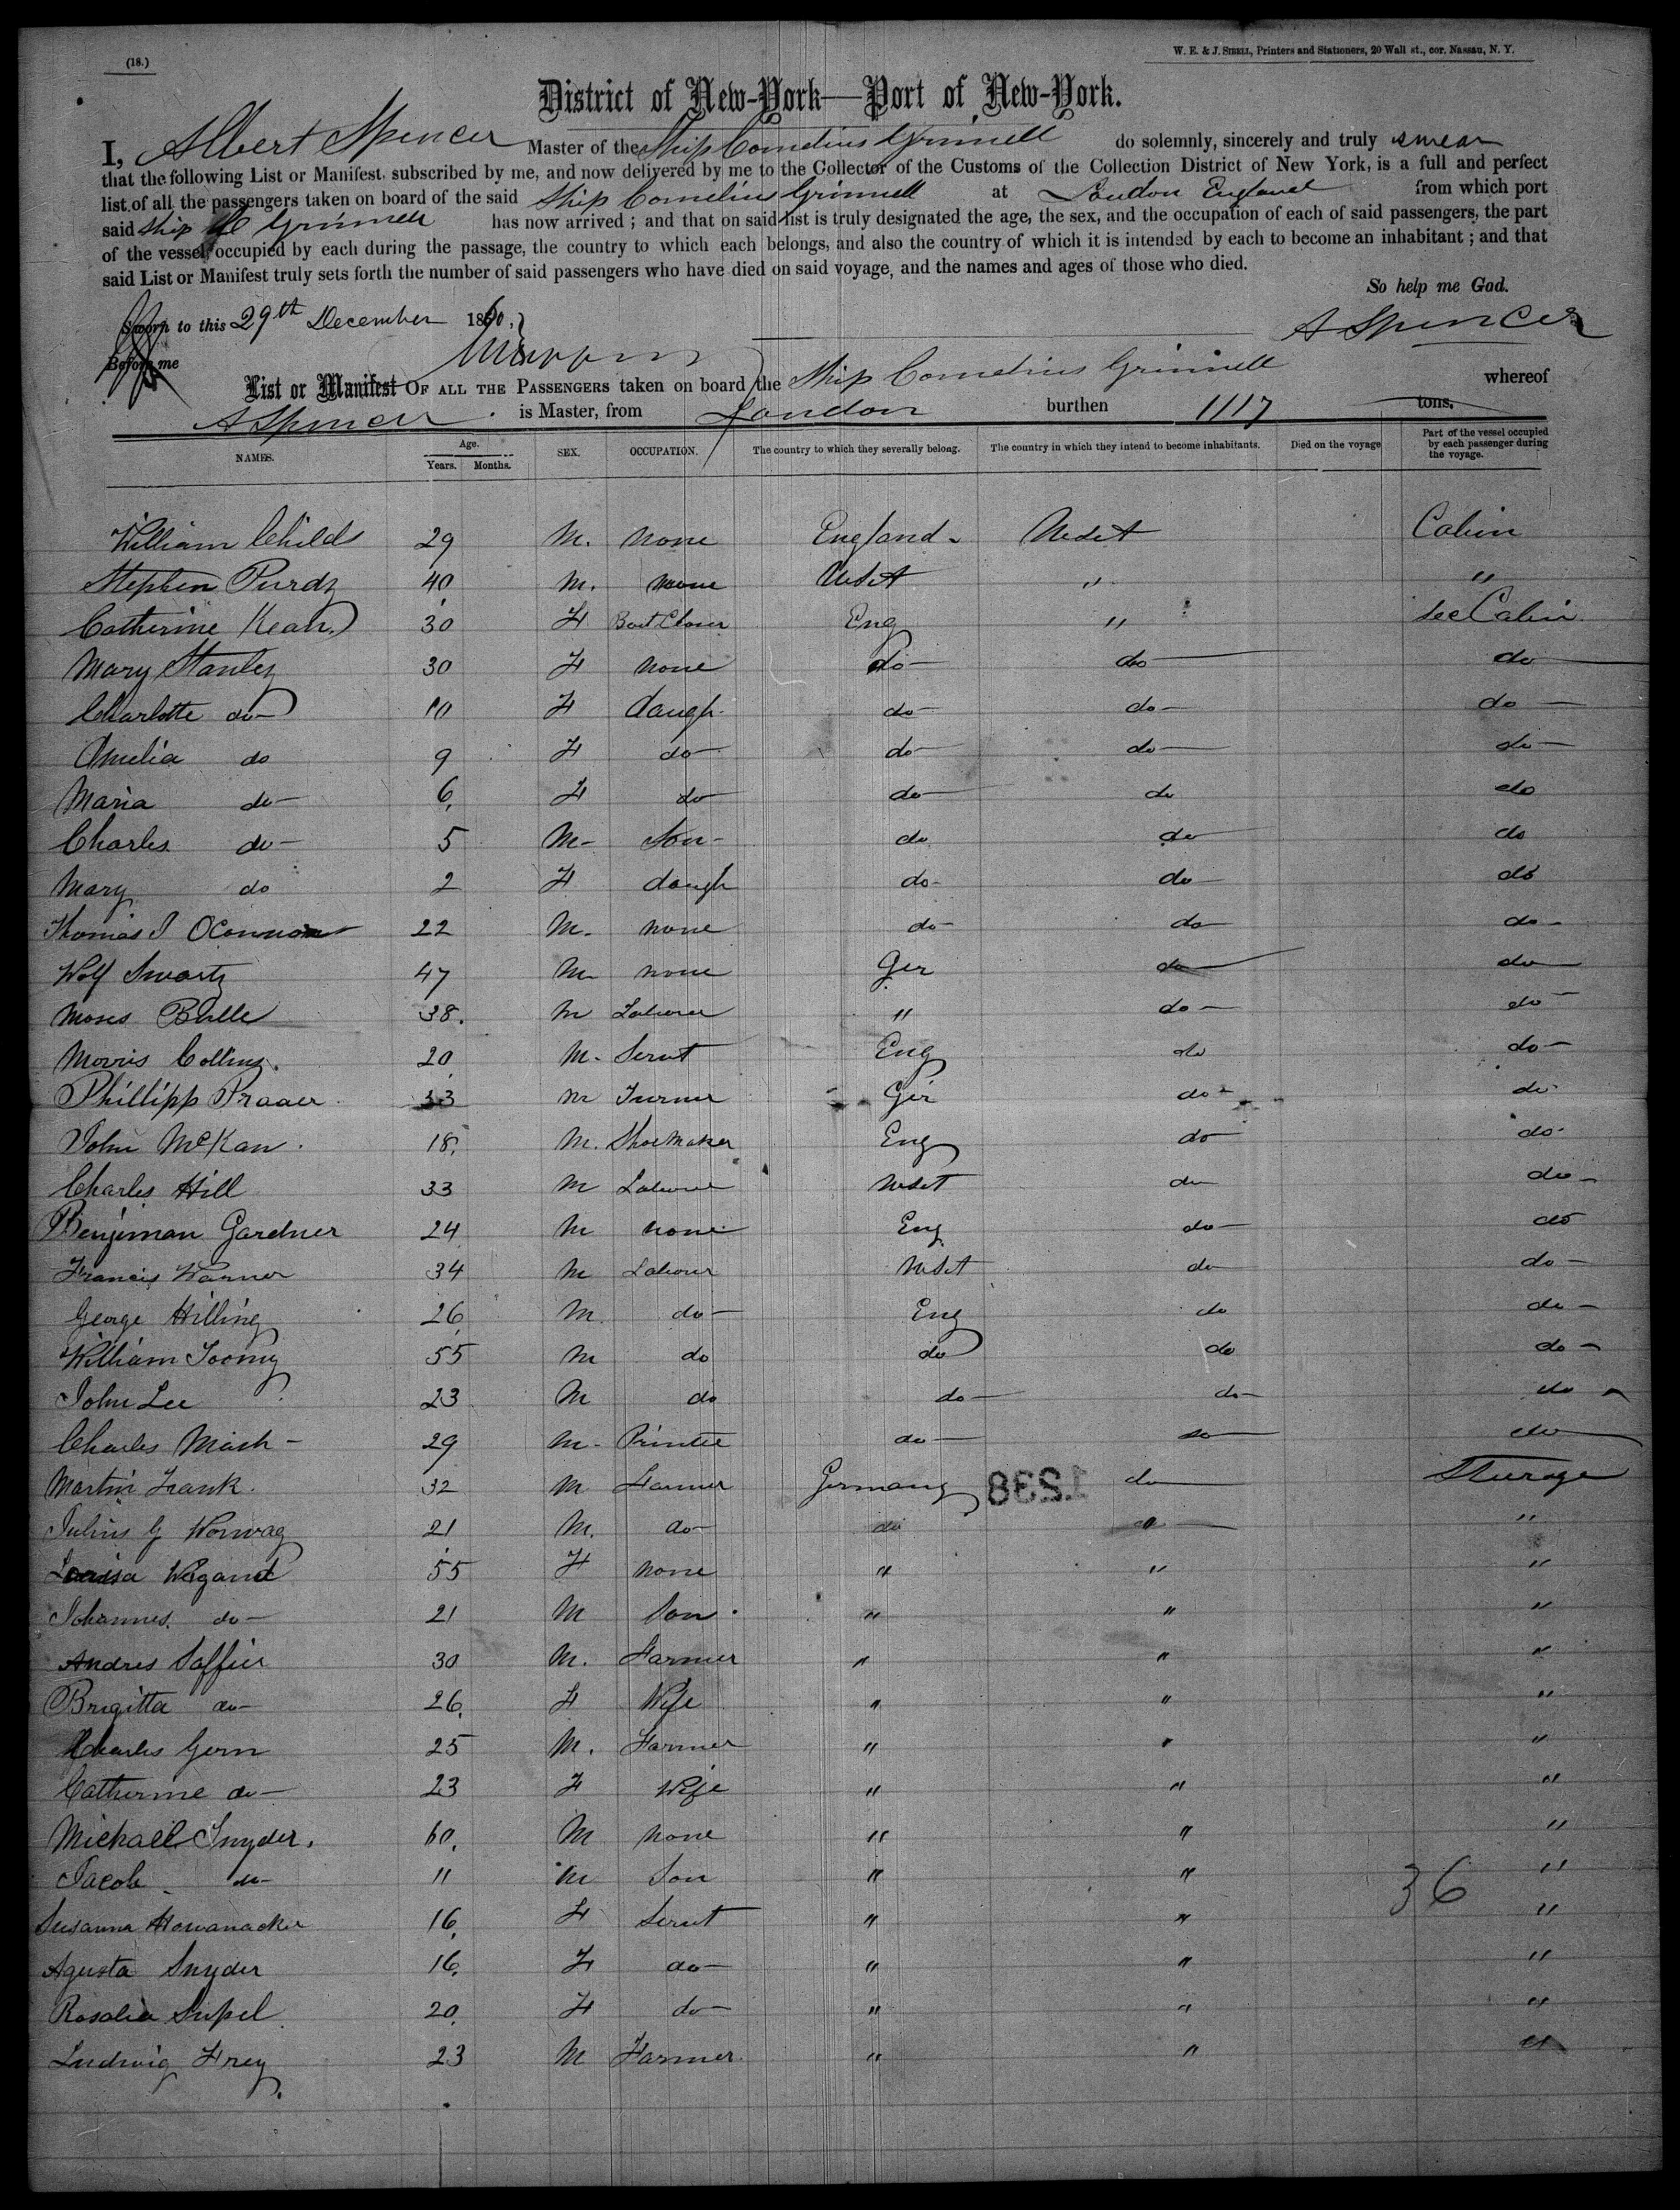 (18.)
W. E. & J. SIBELL, Printers and Stationers, 20 Wall st., cor. Nassau, N. Y.
District of New-York—Port of New-York.
I, Albert Spencer Master of the Ship Cornelius Grinnell do solemnly, sincerely and truly swear
that the following List or Manifest, subscribed by me, and now delivered by me to the Collector of the Customs of the Collection District of New York, is a full and perfect
list of all the passengers taken on board of the said Ship Cornelius Grinnell at London England from which port
said Ship C Grinnell has now arrived ; and that on said list is truly designated the age, the sex, and the occupation of each of said passengers, the part
of the vessel occupied by each during the passage, the country to which each belongs, and also the country of which it is intended by each to become an inhabitant ; and that
said List or Manifest truly sets forth the number of said passengers who have died on said voyage, and the names and ages of those who died.
So help me God.
Sworn to this 29th December 1860,
A Spencer
Before me
List or Manifest OF ALL THE PASSENGERS taken on board the Ship Cornelius Grinnell whereof
A Spencer is Master, from London burthen 1117 tons.
NAMES. Age. Years. Months. SEX. OCCUPATION. The country to which they severally belong. The country in which they intend to become inhabitants. Died on the voyage Part of the vessel occupied by each passenger during the voyage.
William Childs 29 M. none England - USA Cabin
Stephen Purdy 40 M. none USA " "
Catherine Kean 30 F Boot Closer Eng " Sec Cabin
Mary Stanley 30 F none do do do
Charlotte do 10 F daugh. do do do
Amelia do 9 F do do do do
Maria do 6 F do do do do
Charles do 5 M Son do do do
Mary do 2 F daugh do do do
Thomas J OConnor 22 M. none do do do
Wolf Swartz 47 M none Ger do do
Moses Bulle 38. M Laborer " do do
Morris Collins. 20 M. Servt Eng do do
Phillipp Praaer 33 M Turner Ger do do
John McKan 18. M. Shoemaker Eng do do
Charles Hill 33 M Laborer USA do do
Benjiman Gardner 24 M none Eng do do
Francis Warner 34 M Laborer USA do do
George Hilling 26 M do Eng do do
William Toomy 55 M do do do do
John Lee 23 M do do do do
Charles Mash 29 M. Printer do do do
Martin Frank 32 M Farmer Germany 1238 do Steerage
Julius G Worwag 21 M. do do " "
Louisa Wigand 55 F none " " "
Johannes do 21 M Son " " "
Andres Saffier 30 M. Farmer " " "
Brigitta do 26. F Wife " " "
Charles Gern 25 M. Farmer " " "
Catherine do 23 F Wife " " "
Michael Snyder. 60. M none " " "
Jacob do 11 M Son " " "
36
Susanna Howanacker 16. F Servt " " "
Agusta Snyder 16. F do " " "
Rosalia Supel 20. F do " " "
Ludwig Frey 23 M Farmer " " "